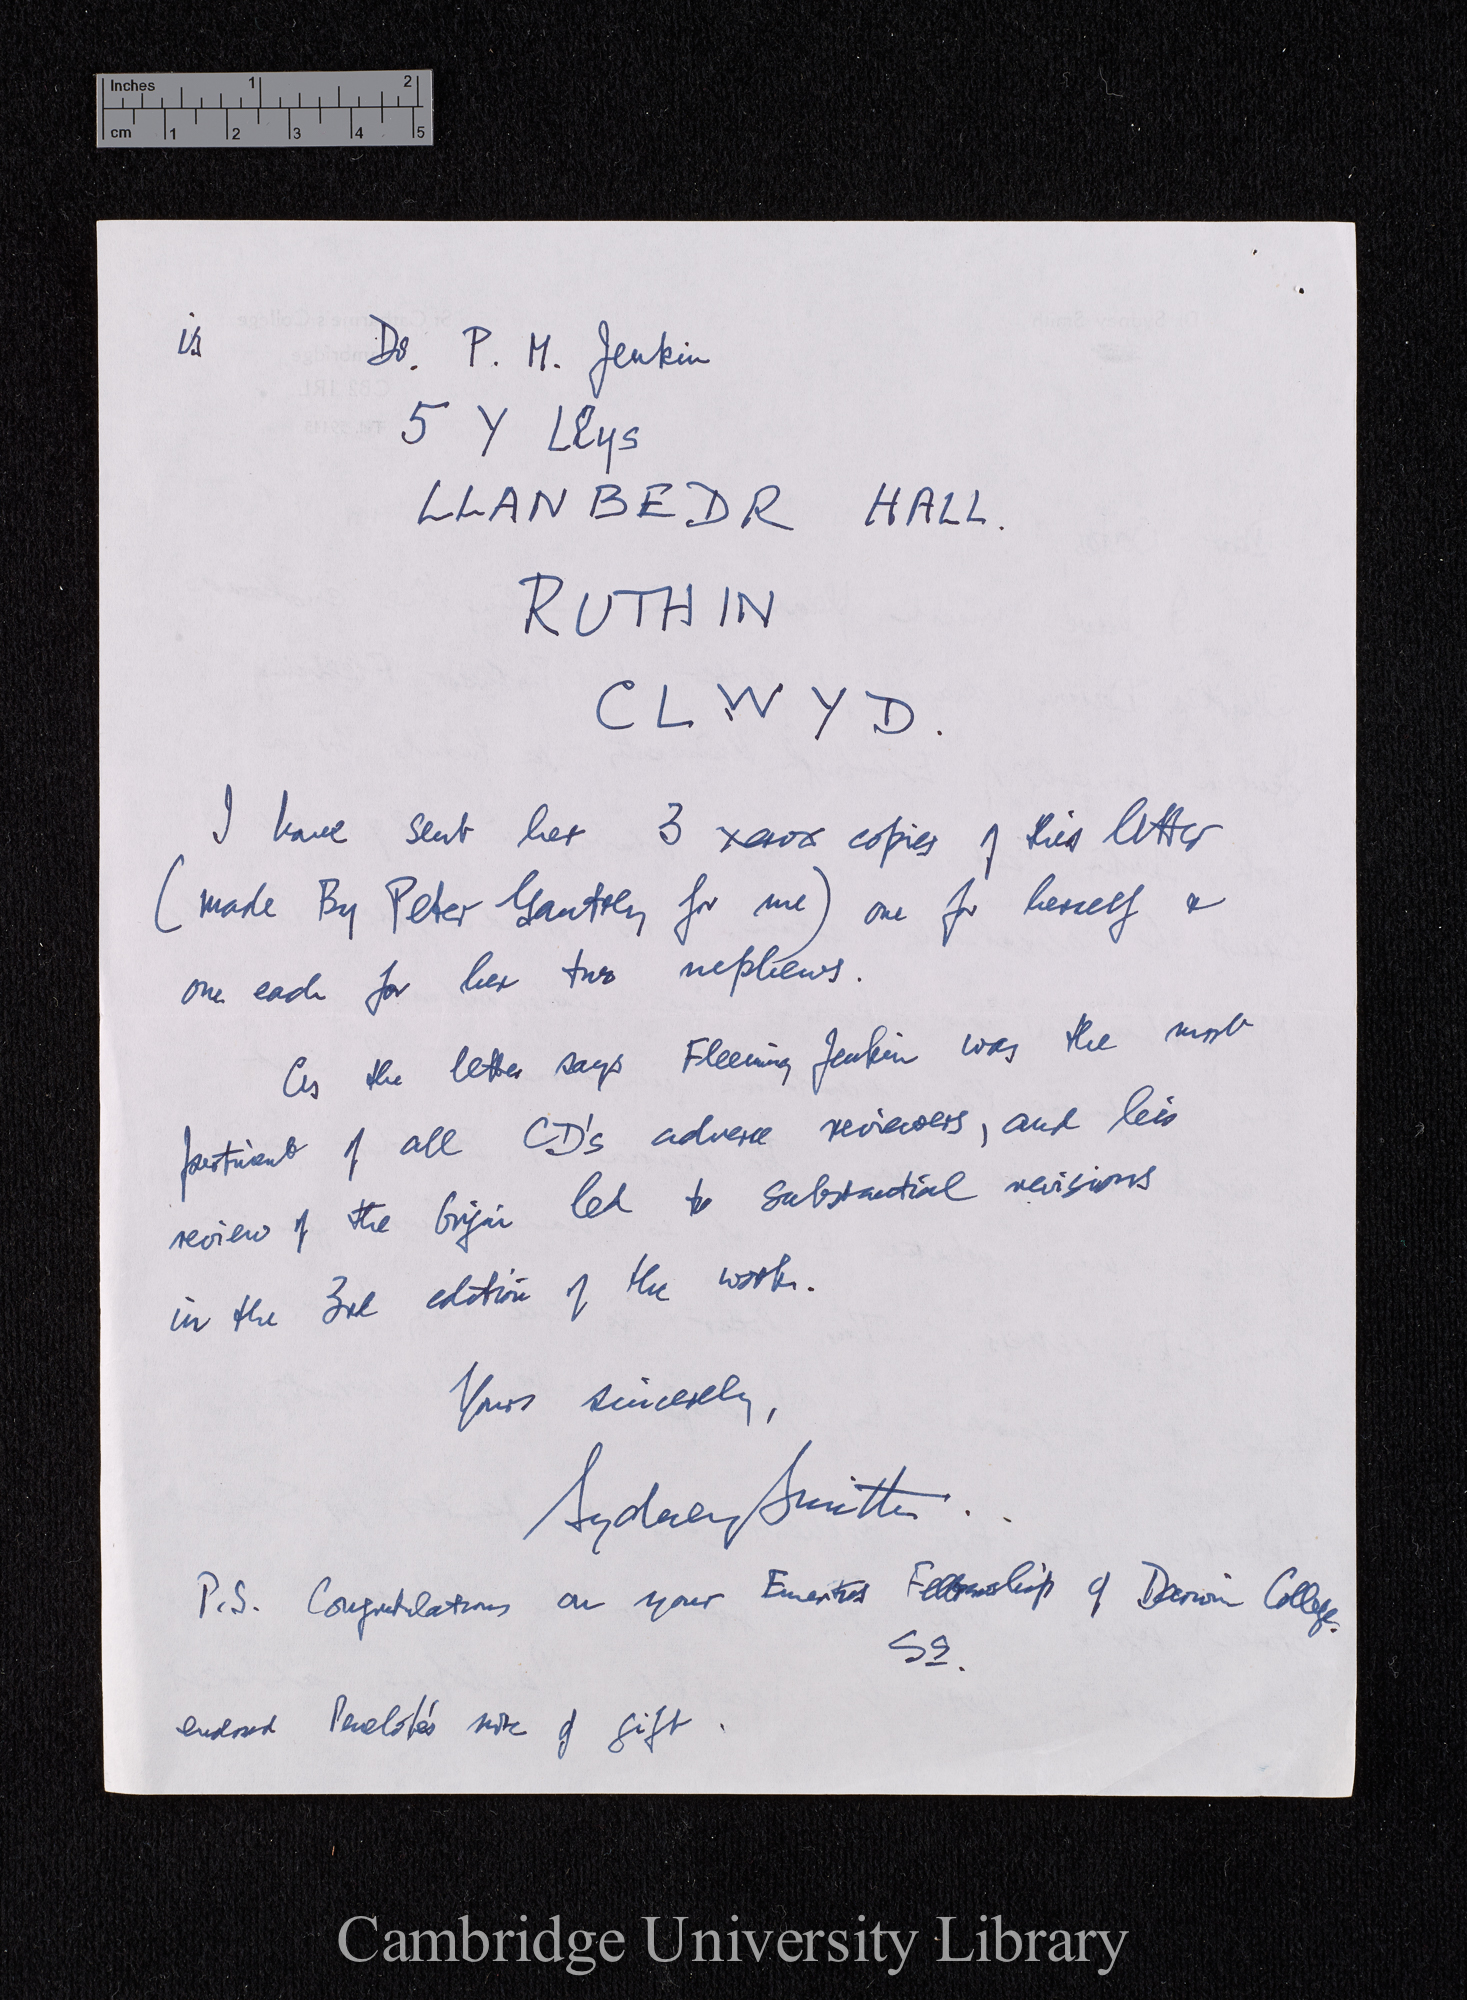 Inches 1 2
cm 1 2 3 4 5
is Dr. P. M. Jenkin
5 Y Llys
LLANBEDR HALL.
RUTHIN
CLWYD.
I have sent her 3 xerox copies of this letter
(made By Peter Gautrey for me) one for herself &
one each for her two nephews.
As the letter says Fleeming Jenkin was the most
pertinent of all CD's adverse reviewers, and his
review of the Origin led to substantial revisions
in the 3rd edition of the work.
Yours sincerely,
Sydney Smith.
P.S. Congratulations on your Emeritus Fellowship of Darwin College.
SS.
enclosed Penelope's note of gift.
Cambridge University Library